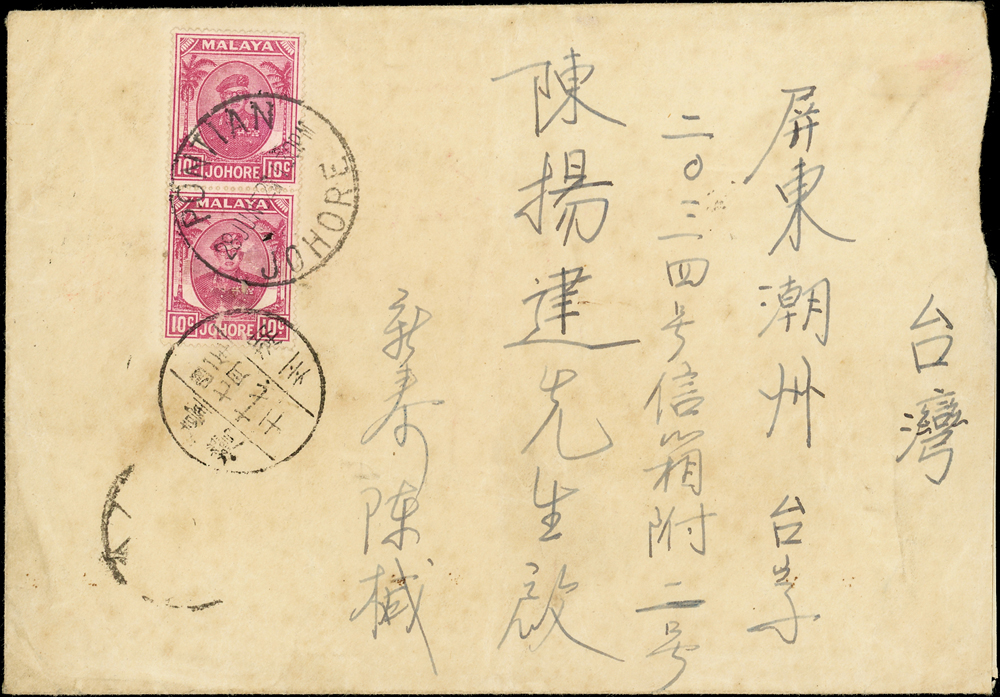 台灣
屏東潮州 台字
二〇三四号信箱附二号
陳揚建先生啟
陳
MALAYA
10c JOHORE 10c
MALAYA
10c JOHORE 10c
PONTIAN
JOHORE